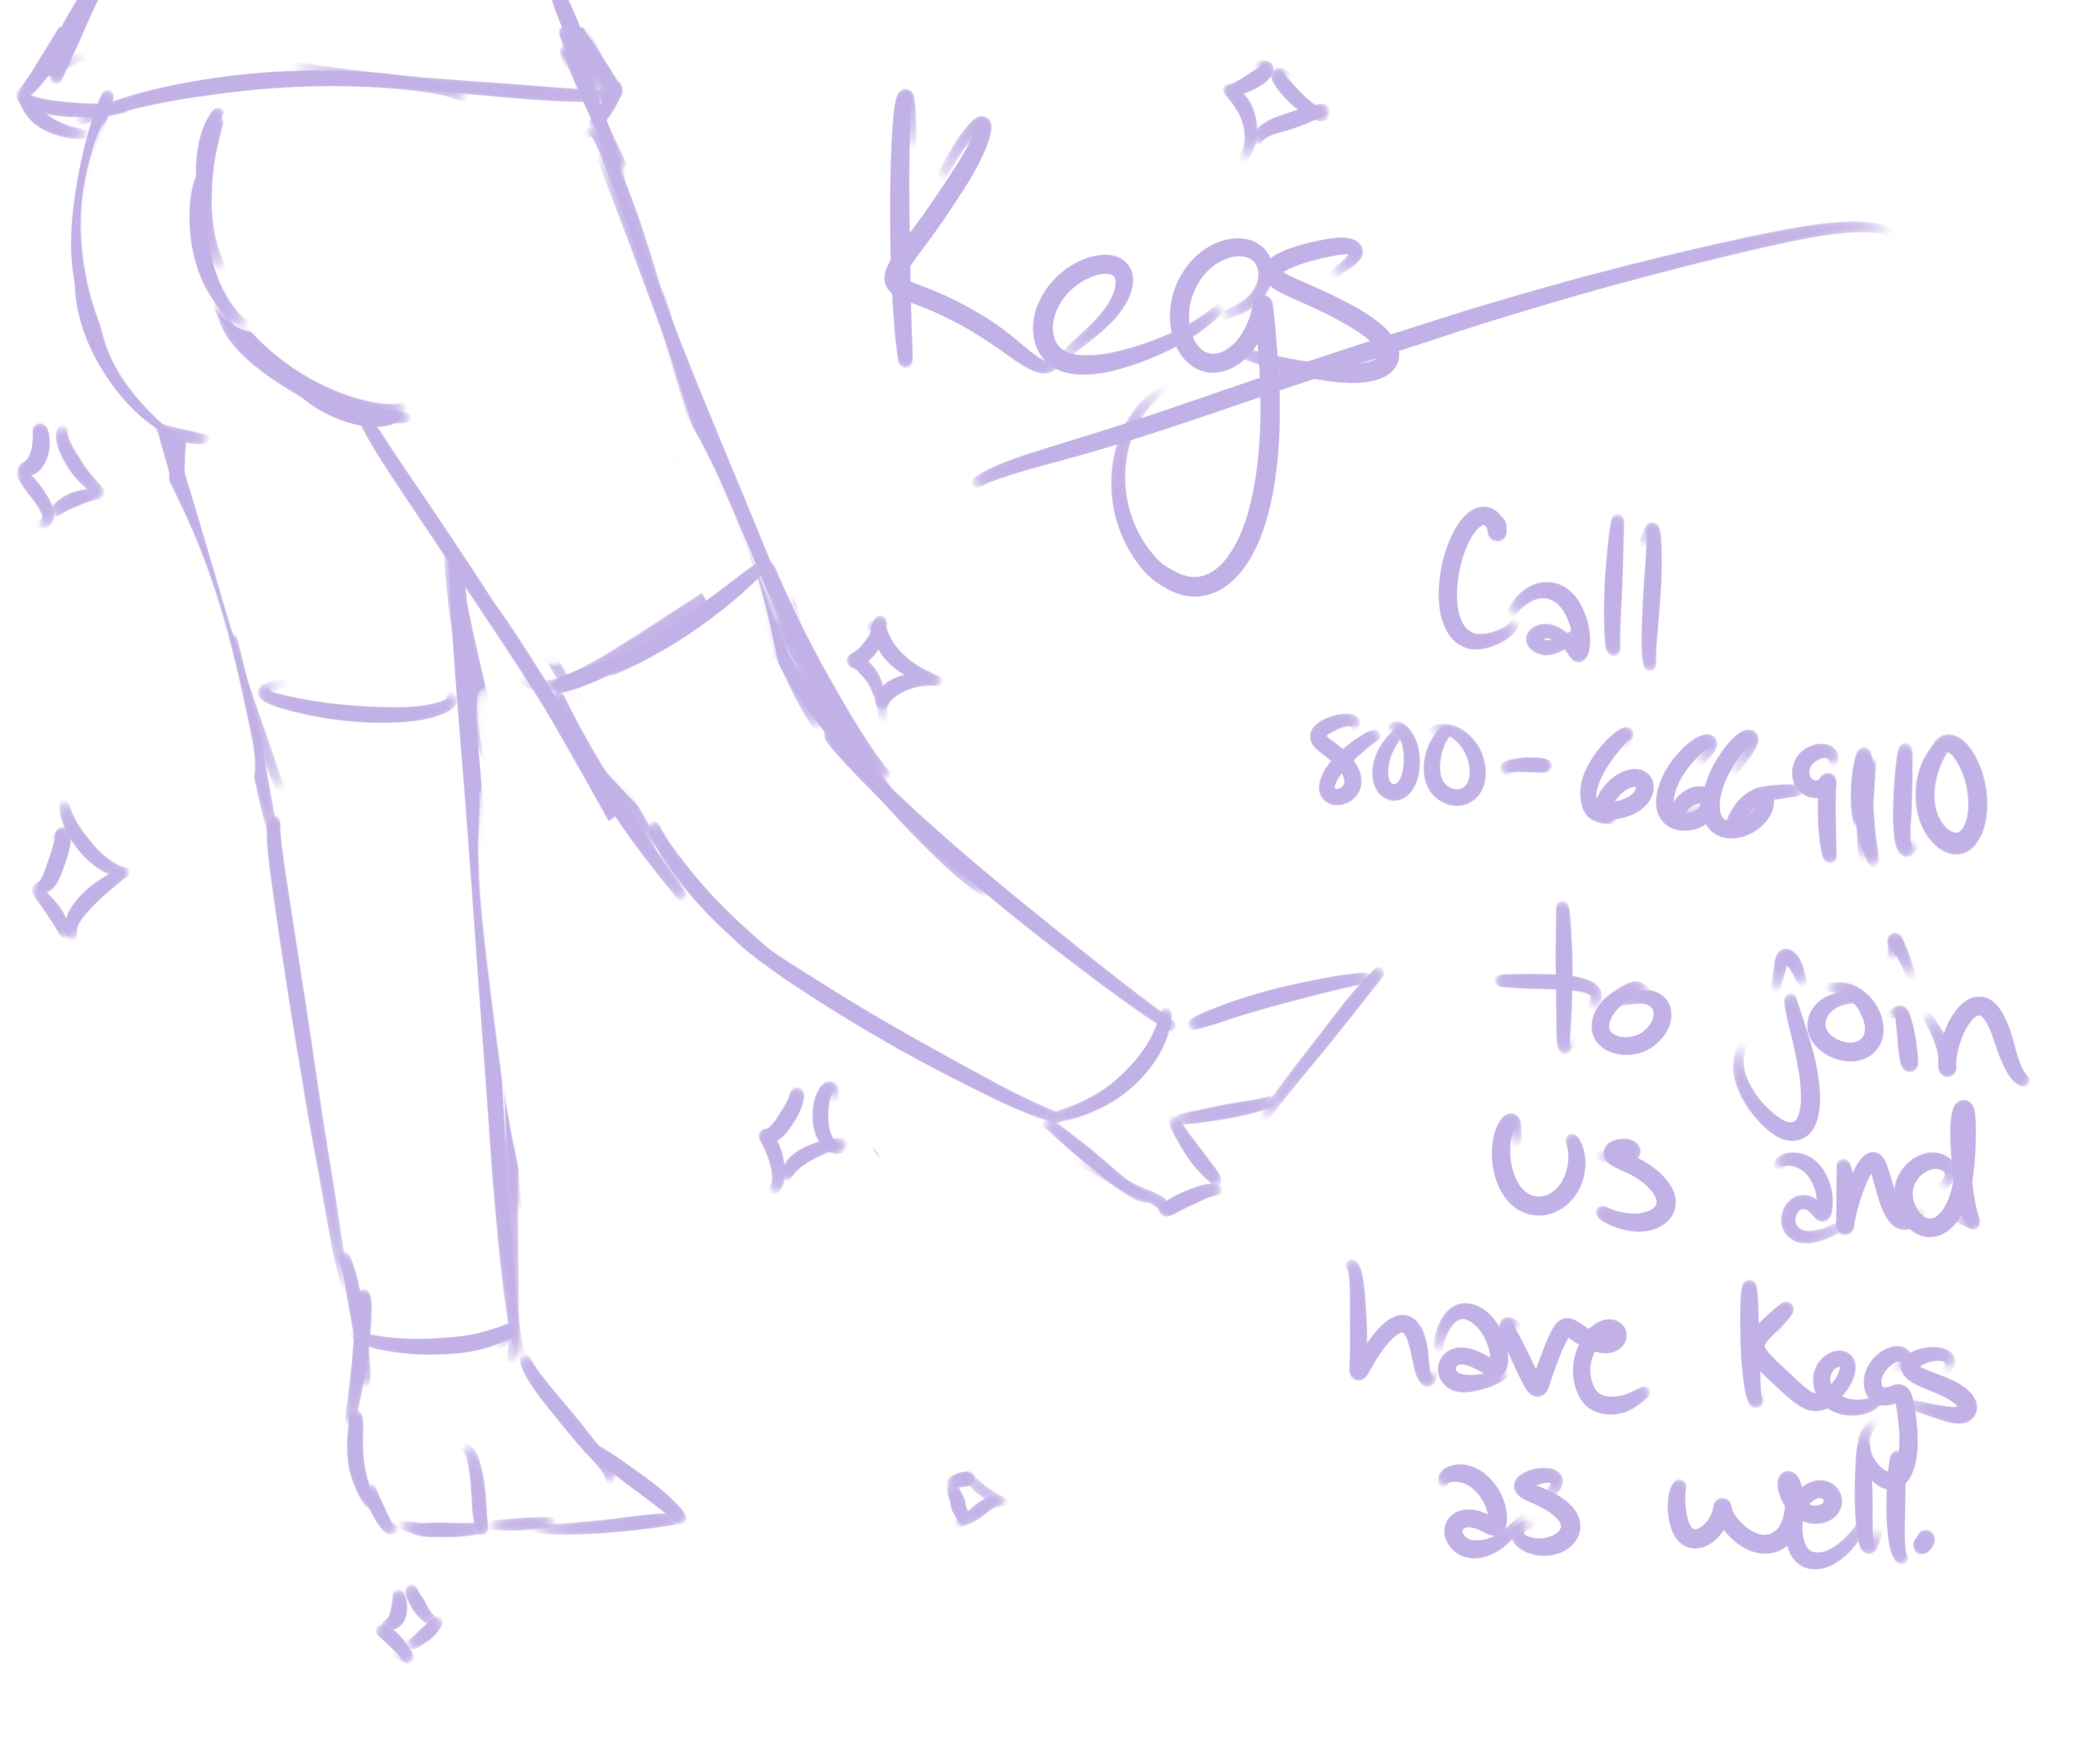 Kegs
Call
800-6669110
to join
us and
have Kegs
as well.